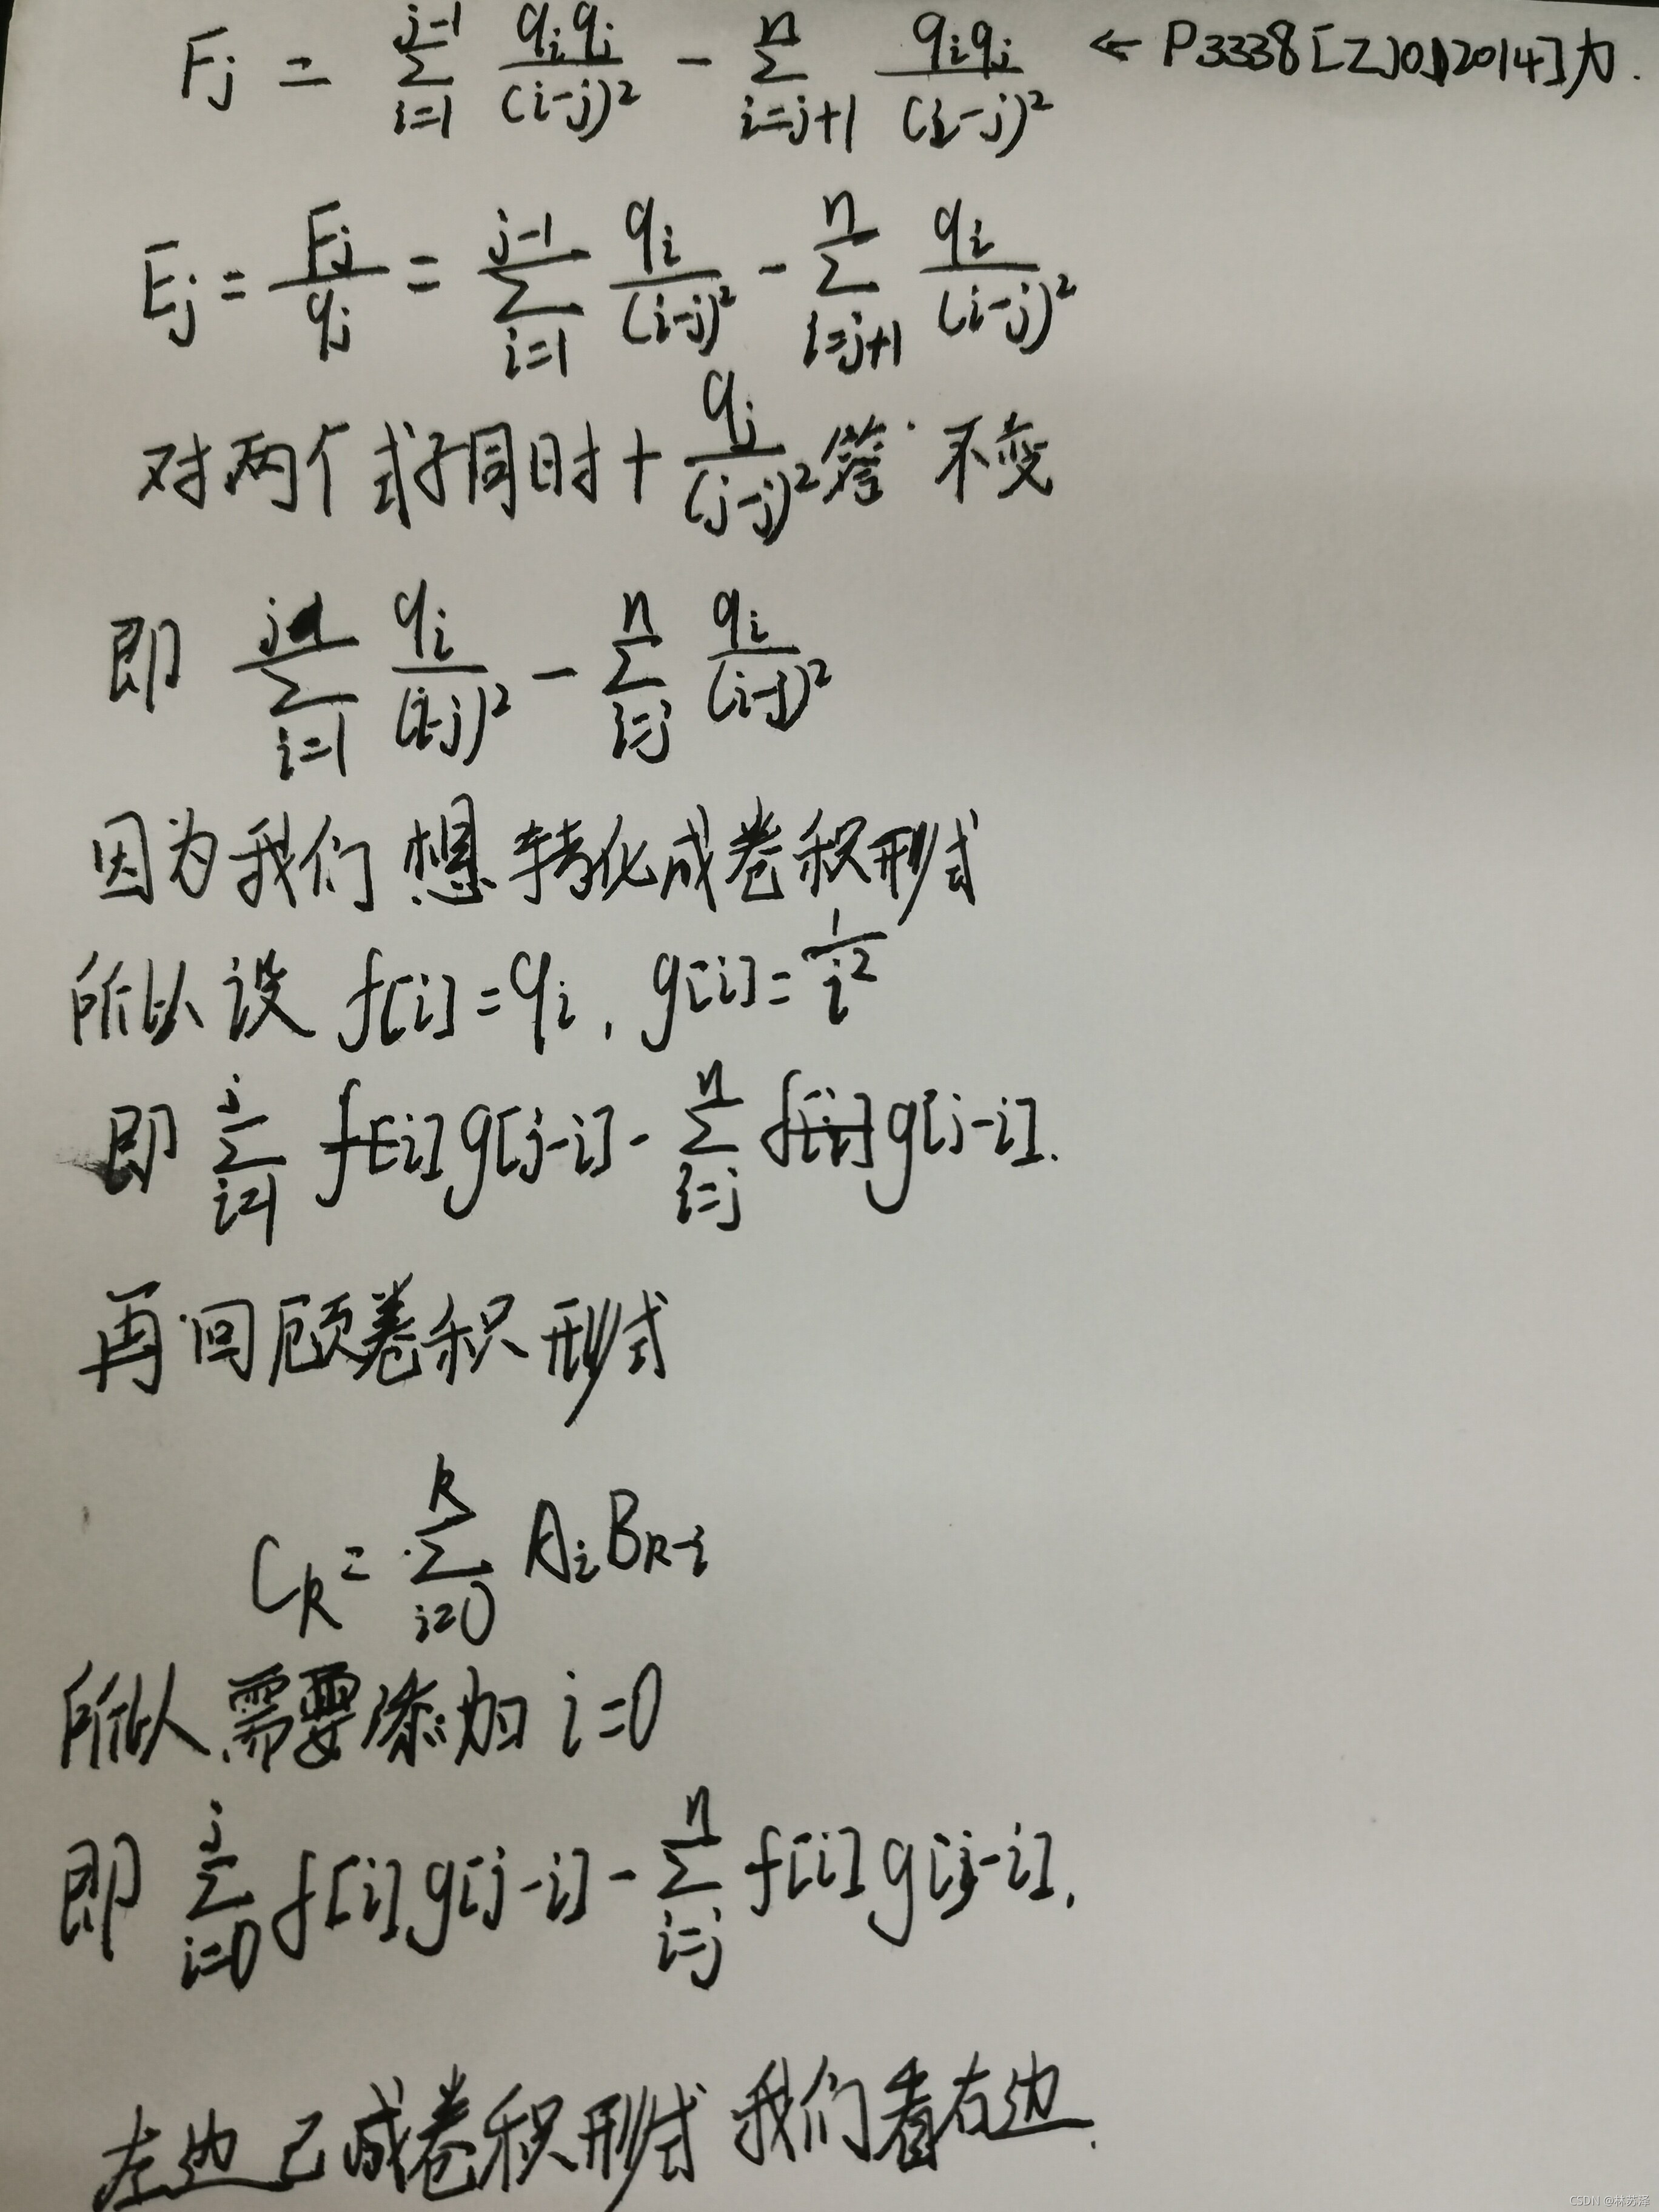 Fj = ∑_{i=1}^{j-1} qiqj/(i-j)² - ∑_{i=j+1}^{n} qiqj/(i-j)² ← P3338[ZJOI2014]力.
Ej = Fj/qj = ∑_{i=1}^{j-1} qi/(i-j)² - ∑_{i=j+1}^{n} qi/(i-j)²
对两个式子同时+ qj/(j-j)² 答 不变
即 ∑_{i=1}^{j} qi/(i-j)² - ∑_{i=j}^{n} qi/(i-j)²
因为我们想转化成卷积形式
所以设 f[i]=qi, g[i]=1/i²
即 ∑_{i=1}^{j} f[i]g[j-i] - ∑_{i=j}^{n} f[i]g[j-i].
再回顾卷积形式
Ck = ∑_{i=0}^{k} AiBk-i
所以需要添加 i=0
即 ∑_{i=0}^{j} f[i]g[j-i] - ∑_{i=j}^{n} f[i]g[j-i].
左边已成卷积形式 我们看右边.
CSDN @林苏泽